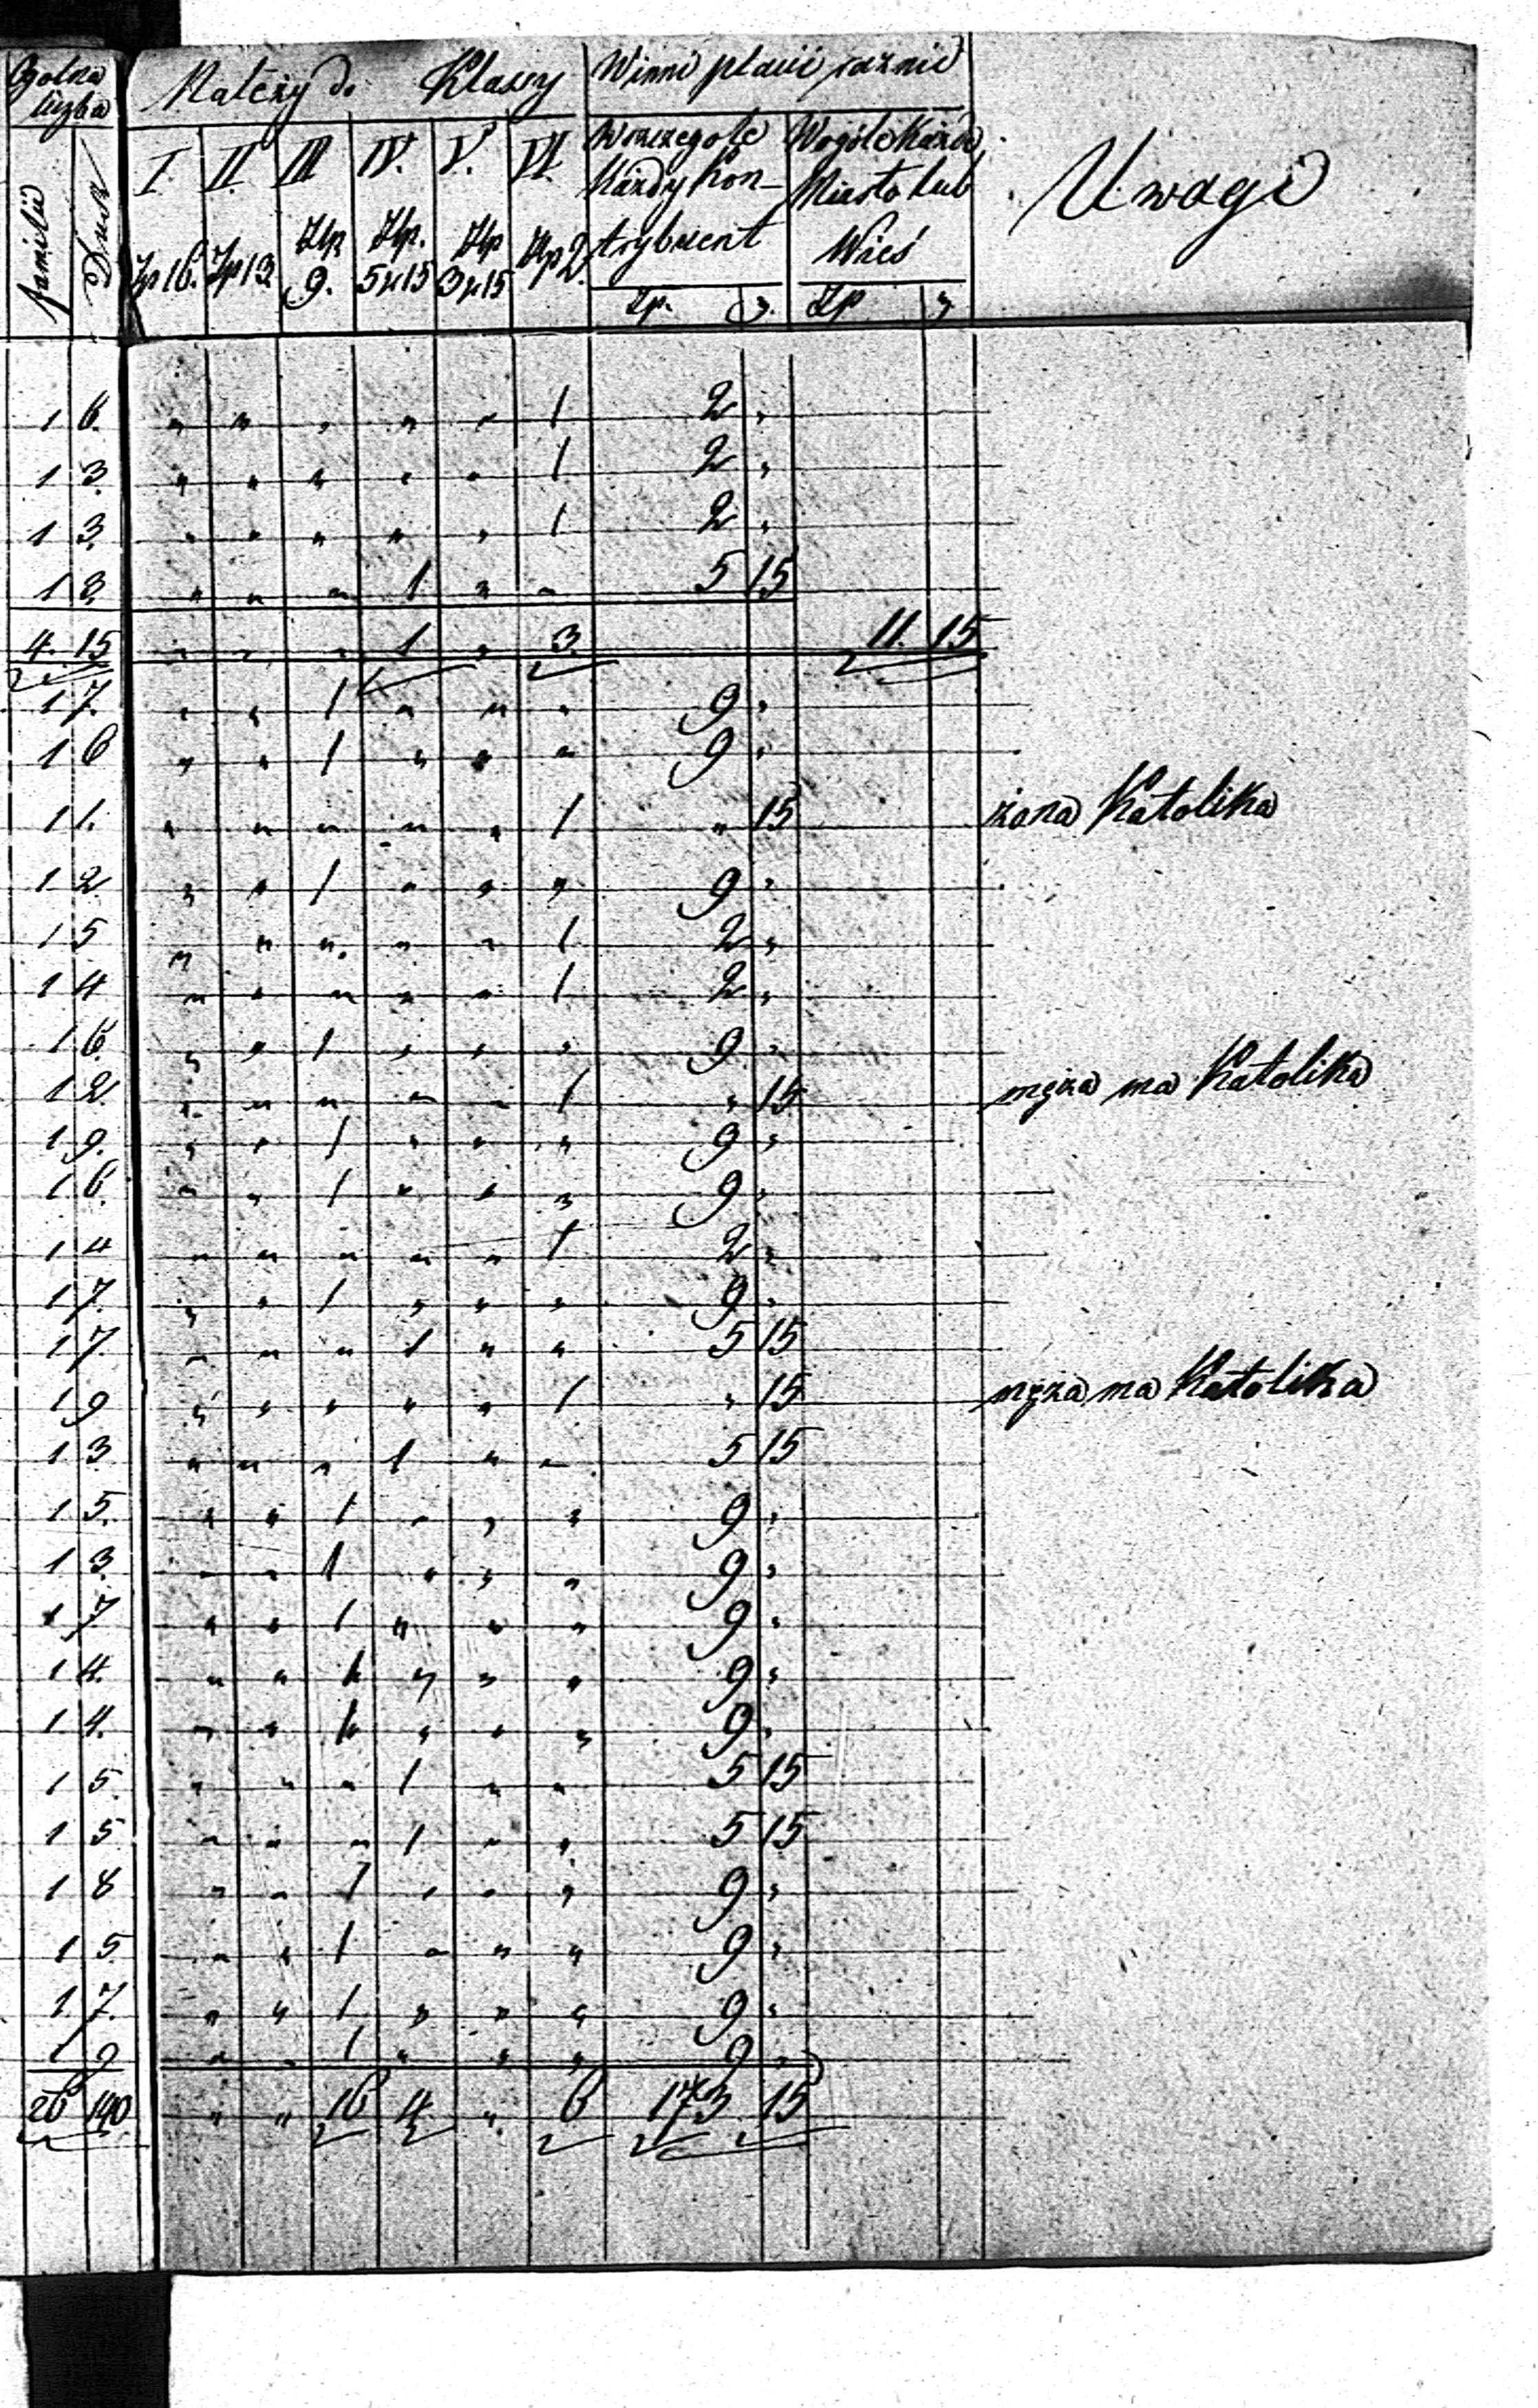 Ogolna liczba | Należy do Klassy | Winni płacić rocznie | Uwagi
familii | Dusz | I. | II. | III | IV. | V. | VI. | W szczególe Każdy Kon- | Wogóle Każde
Miasto lub
trybuent | Wieś
Zp 16. | Zp 13 | Zlp 9. | Zlp. 5 15 | Zlp 3 15 | Zlp 2. | Zp. | g. | Zp | g
1 6. " " " " " 1 2 "
1 3. " " " " " 1 2 "
1 3. " " " " " 1 2 "
1 3. " " " 1 " " 5 15
4. 15 " " " 1 " 3. 11. 15
1 7. " " 1 " " " 9 "
1 6 " " 1 " " " 9 "
1 1. " " " " " 1 " 15 żona Katolika
1 2 " " 1 " " " 9 "
1 5 " " " " " 1 2 "
1 4 " " " " " 1 2 "
1 6. " " 1 " " " 9 "
1 2. " " " " " 1 " 15 męża ma Katolika
1 9. " " 1 " " " 9 "
1 6. " " 1 " " " 9 "
1 4 " " " " " 1 2 "
1 7. " " 1 " " " 9 "
1 7. " " " 1 " " 5 15
1 9 " " " " " 1 " 15 męża ma Katolika
1 3 " " " 1 " " 5 15
1 5. " " 1 " " " 9 "
1 3. " " 1 " " " 9 "
1 7 " " 1 " " " 9 "
1 4. " " 1 " " " 9 "
1 4. " " 1 " " " 9 "
1 5. " " " 1 " " 5 15
1 5 " " " 1 " " 5 15
1 8 " " 1 " " " 9 "
1 5. " " 1 " " " 9 "
1 7. " " 1 " " " 9 "
1 9 " " 1 " " " 9 "
26 140 " " 16 4 " 6 173 15